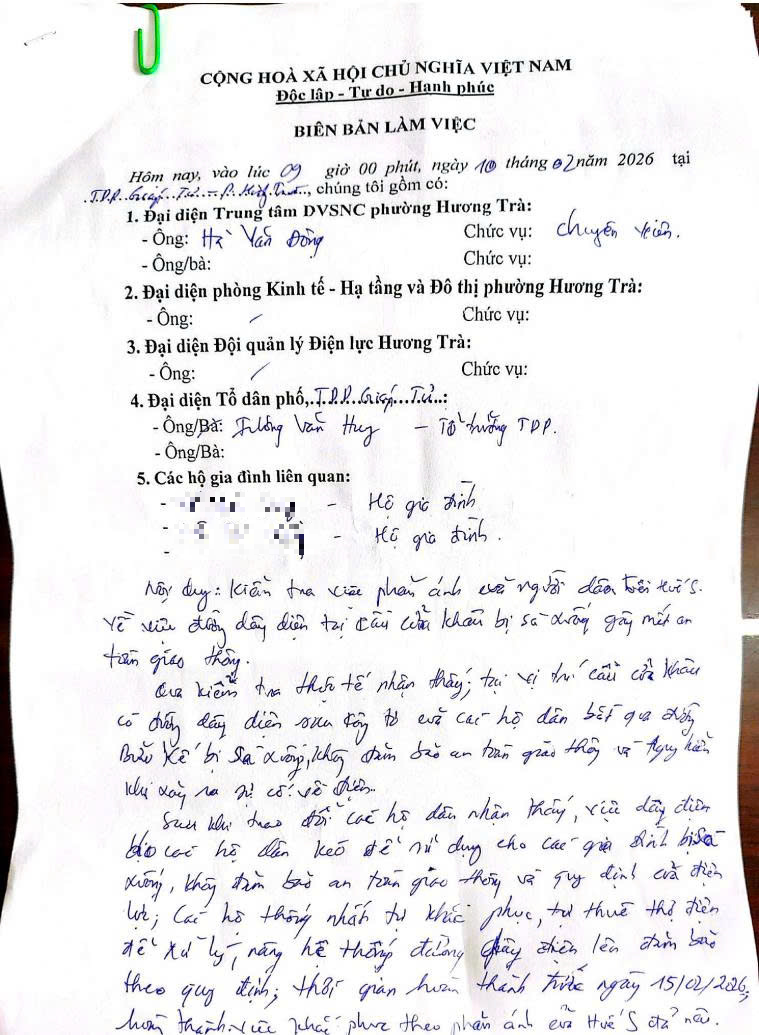 CỘNG HOÀ XÃ HỘI CHỦ NGHĨA VIỆT NAM
Độc lập - Tự do - Hạnh phúc
BIÊN BẢN LÀM VIỆC
Hôm nay, vào lúc 09 giờ 00 phút, ngày 10 tháng 02 năm 2026 tại
T.D.P. Giáp Tư - P. Hương Trà, chúng tôi gồm có:
1. Đại diện Trung tâm DVSNC phường Hương Trà:
- Ông: Hà Văn Đông Chức vụ: Chuyên viên.
- Ông/bà: Chức vụ:
2. Đại diện phòng Kinh tế - Hạ tầng và Đô thị phường Hương Trà:
- Ông: / Chức vụ:
3. Đại diện Đội quản lý Điện lực Hương Trà:
- Ông: / Chức vụ:
4. Đại diện Tổ dân phố, T.D.P. Giáp Tư:
- Ông/Bà: Văn Huy - Tổ trưởng TDP.
- Ông/Bà:
5. Các hộ gia đình liên quan:
- - Hộ gia đình
- - Hộ gia đình.
-
Nội dung: Kiểm tra việc phản ánh của người dân trên Huế S.
Về việc đường dây điện tại cầu cửa khâu bị sà xuống gây mất an
toàn giao thông.
Qua kiểm tra thực tế nhận thấy; tại vị trí cầu cửa khâu
có đường dây điện sau công tơ của các hộ dân bắt qua đường
Bửu Kế bị sà xuống, không đảm bảo an toàn giao thông và nguy hiểm
khi xảy ra sự cố về điện.
Sau khi trao đổi các hộ dân nhận thấy, việc dây điện
do các hộ dân kéo để sử dụng cho các gia đình bị sà
xuống, không đảm bảo an toàn giao thông và quy định của điện
lực; Các hộ thống nhất tự khắc phục, tự thuê thợ điện
để xử lý, nâng hệ thống đường dây điện lên đảm bảo
theo quy định; thời gian hoàn thành trước ngày 15/02/2026,
hoàn thành việc khắc phục theo phản ánh của Huế S đã nêu.